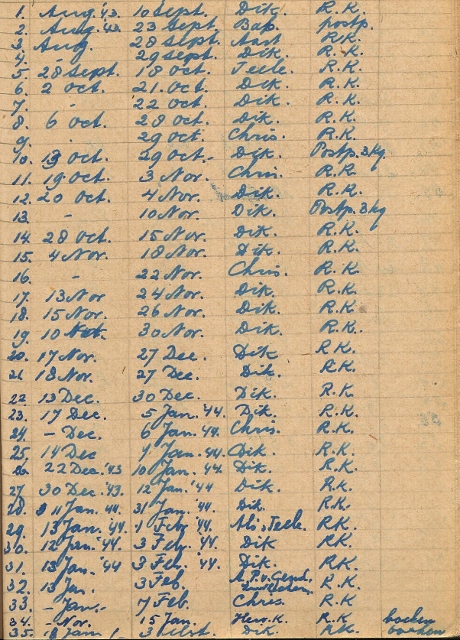 1. Aug. '43 10 Sept. Dik. R.K.
2. Aug. '43 23 Sept. Bap. postp.
3. Aug. 28 Sept. R.K.
4. - 29 Sept. Dik. R.K.
5. 28 Sept. 18 Oct. Teele. R.K.
6. 2 Oct. 21 Oct. Dik. R.K.
7. - 22 Oct. Dik. R.K.
8. 6 Oct. 28 Oct. Dik. R.K.
9. - 29 Oct. Chris. R.K.
10. 13 Oct. 29 Oct. Dik. Postp. 3 kg
11. 19 Oct. 3 Nov. Chris. R.K.
12. 20 Oct. 4 Nov. Dik. R.K.
13. - 10 Nov. Dik. Postp. 3 kg
14. 28 Oct. 15 Nov. Dik. R.K.
15. 4 Nov. 18 Nov. Dik. R.K.
16. - 22 Nov. Chris. R.K.
17. 13 Nov 24 Nov. Dik. R.K.
18. 15 Nov. 26 Nov. Dik. R.K.
19. 10 30 Nov. Dik. R.K.
20. 17 Nov. 27 Dec. Dik R.K.
21 18 Nov. 27 Dec. Dik. R.K.
22. 13 Dec. 30 Dec. Dik. R.K.
23. 17 Dec. 5 Jan. '44. Dik. R.K.
24. - Dec. 6 Jan. '44. Chris. R.K.
25 14 Dec Jan. '44. Dik. R.K.
26. 22 Dec. '43 10 Jan. '44. Dik. R.K.
27 30 Dec. '43. 12 Jan. '44 Dik. R.K.
28. 11 Jan. 44. 31 Jan. '44. Dik. R.K.
29. 13 Jan. '44. 1 Feb. '44. Teele. R.K.
30. 12 Jan. '44. 3 Feb. '44. Dik R.K.
31. 13 Jan. '44 3 Feb. '44. Dik. R.K.
32. 13 Jan. 3 Feb. R.K.
33. - Jan. - 7 Feb. Chris. R.K.
34. - Nov. 15 Jan. Henk. R.K. boeken
35. 18 Jan. Dik. R.K. boeken